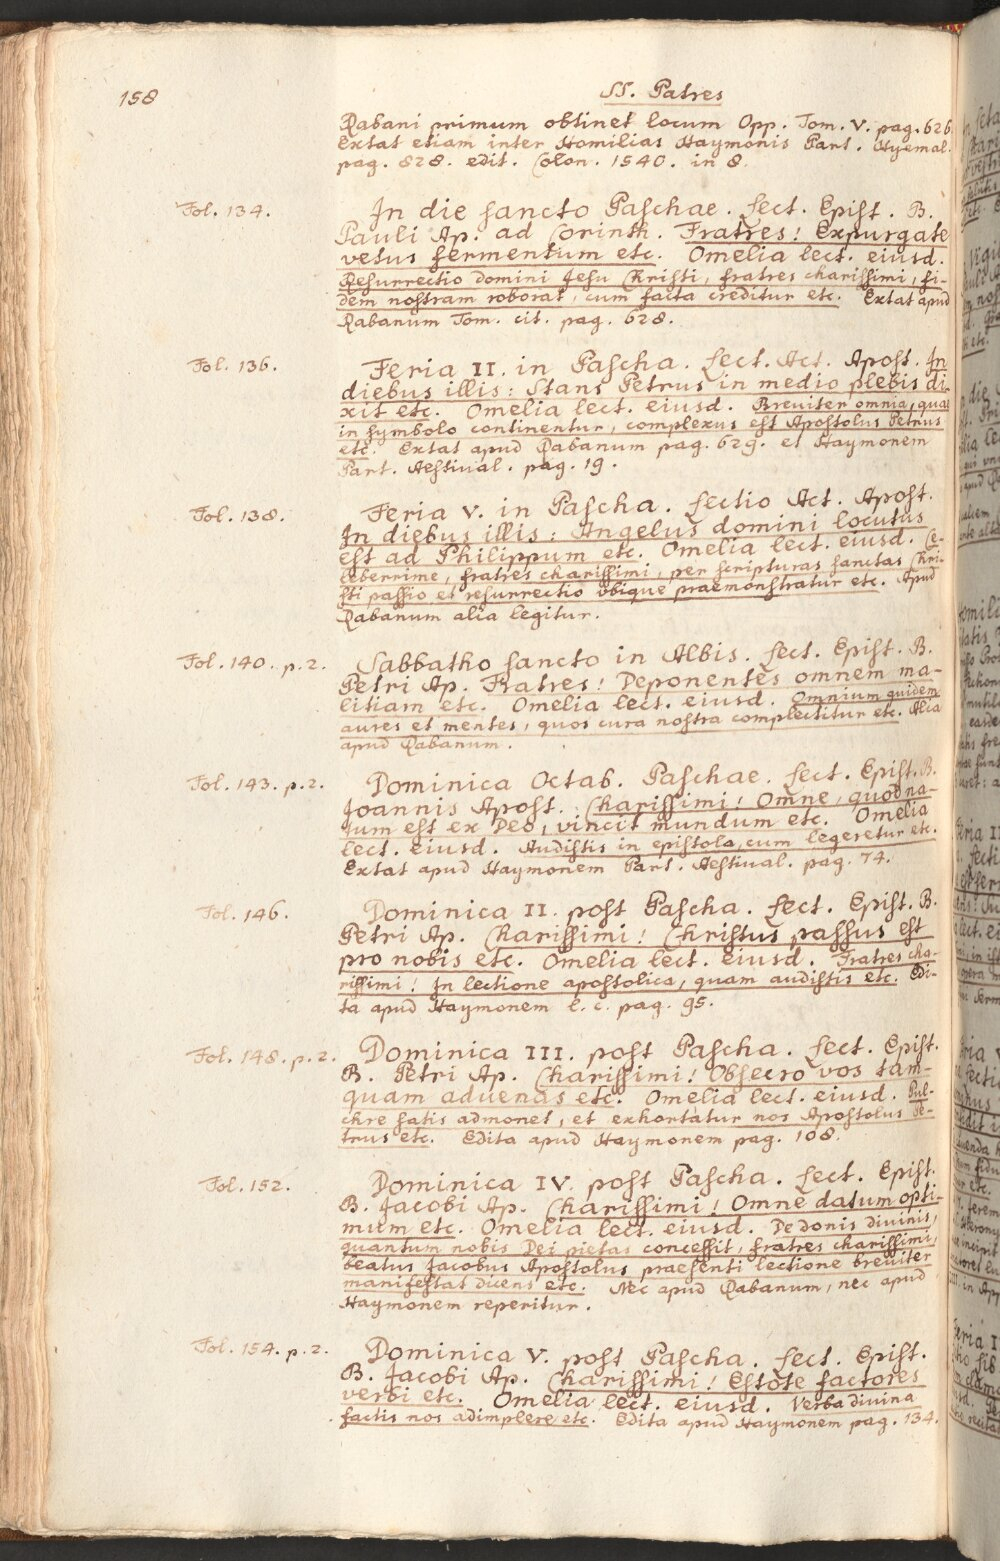 158
SS. Patres
Rabani primum obtinet locum Opp. Tom. V. pag. 626.
Extat etiam inter Homilias Haymonis Part. Hyemal.
pag. 828. edit. Colon. 1540. in 8.
Fol. 134. In die sancto Paschae. Lect. Epist. B.
Pauli Ap. ad Corinth. Fratres! Expurgate
vetus fermentum etc. Omelia lect. eiusd.
Resurrectio domini Jesu Christi, fratres charissimi, fi-
dem nostram roborat, cum facta creditur etc. Extat apud
Rabanum Tom. cit. pag. 628.
Fol. 136. Feria II. in Pascha. Lect. Act. Apost. In
diebus illis: Stans Petrus in medio plebis di-
xit etc. Omelia lect. eiusd. Breviter omnia, quae
in symbolo continentur, complexus est Apostolus Petrus
etc. Extat apud Rabanum pag. 629. et Haymonem
Part. Aestival. pag. 19.
Fol. 138. Feria V. in Pascha. Lectio Act. Apost.
In diebus illis: Angelus domini locutus
est ad Philippum etc. Omelia lect. eiusd. Ce-
leberrime, fratres charissimi, per scripturas sanctas Chri-
sti passio et resurrectio ubique praemonstratur etc. Apud
Rabanum alia legitur.
Fol. 140. p. 2. Sabbatho sancto in Albis. Lect. Epist. B.
Petri Ap. Fratres! Deponentes omnem ma-
litiam etc. Omelia lect. eiusd. Omnium quidem
aures et mentes, quos cura nostra complectitur etc. Alia
apud Rabanum.
Fol. 143. p. 2. Dominica Octab. Paschae. Lect. Epist. B.
Joannis Apost. Charissimi! Omne, quod na-
tum est ex Deo, vincit mundum etc. Omelia
lect. eiusd. Audistis in epistola, cum legeretur etc.
Extat apud Haymonem Part. Aestival. pag. 74.
Fol. 146. Dominica II. post Pascha. Lect. Epist. B.
Petri Ap. Charissimi! Christus passus est
pro nobis etc. Omelia lect. eiusd. Fratres cha-
rissimi! In lectione apostolica, quam audistis etc. Edi-
ta apud Haymonem l. c. pag. 95.
Fol. 148. p. 2. Dominica III. post Pascha. Lect. Epist.
B. Petri Ap. Charissimi! Obsecro vos tam-
quam advenas etc. Omelia lect. eiusd. Pul-
chre satis admonet, et exhortatur nos Apostolus Pe-
trus etc. Edita apud Haymonem pag. 108.
Fol. 152. Dominica IV. post Pascha. Lect. Epist.
B. Jacobi Ap. Charissimi! Omne datum opti-
mum etc. Omelia lect. eiusd. De donis divinis,
quantum nobis Dei pietas concessit, fratres charissimi,
beatus Jacobus Apostolus praesenti lectione breviter
manifestat dicens etc. Nec apud Rabanum, nec apud
Haymonem reperitur.
Fol. 154. p. 2. Dominica V. post Pascha. Lect. Epist.
B. Jacobi Ap. Charissimi! Estote factores
verbi etc. Omelia lect. eiusd. Verba divina
factis nos adimplere etc. Edita apud Haymonem pag. 134.